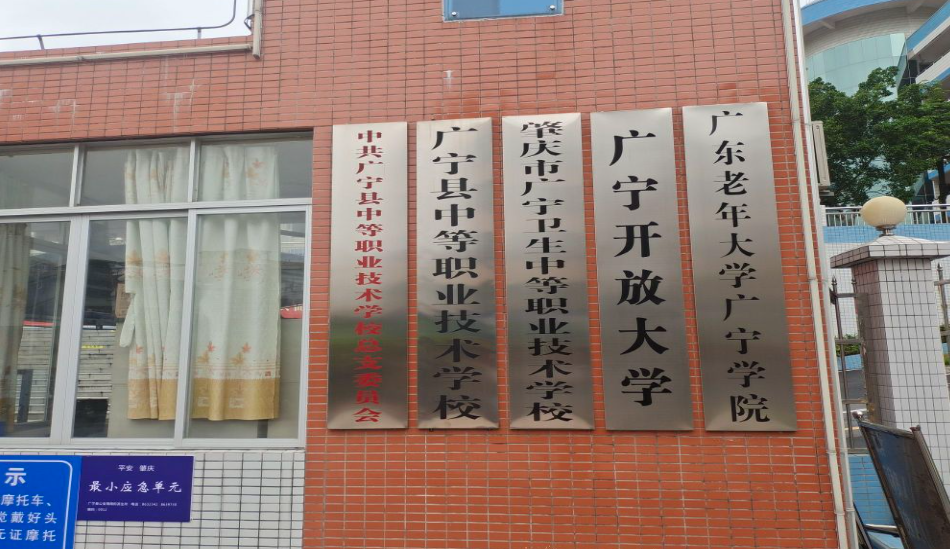 中共广宁县中等职业技术学校总支委员会
广宁县中等职业技术学校
肇庆市广宁卫生中等职业技术学校
广宁开放大学
广东老年大学广宁学院
示
摩托车、
觉戴好头
无证摩托
平安 肇庆
最小应急单元